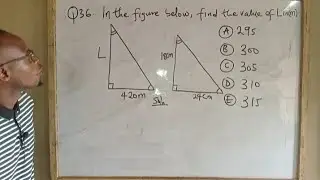 Q36 In the figure below, find the value of L in m,
L
420m
18cm
24cm
Soln
A 295
B 300
C 305
D 310
E 315